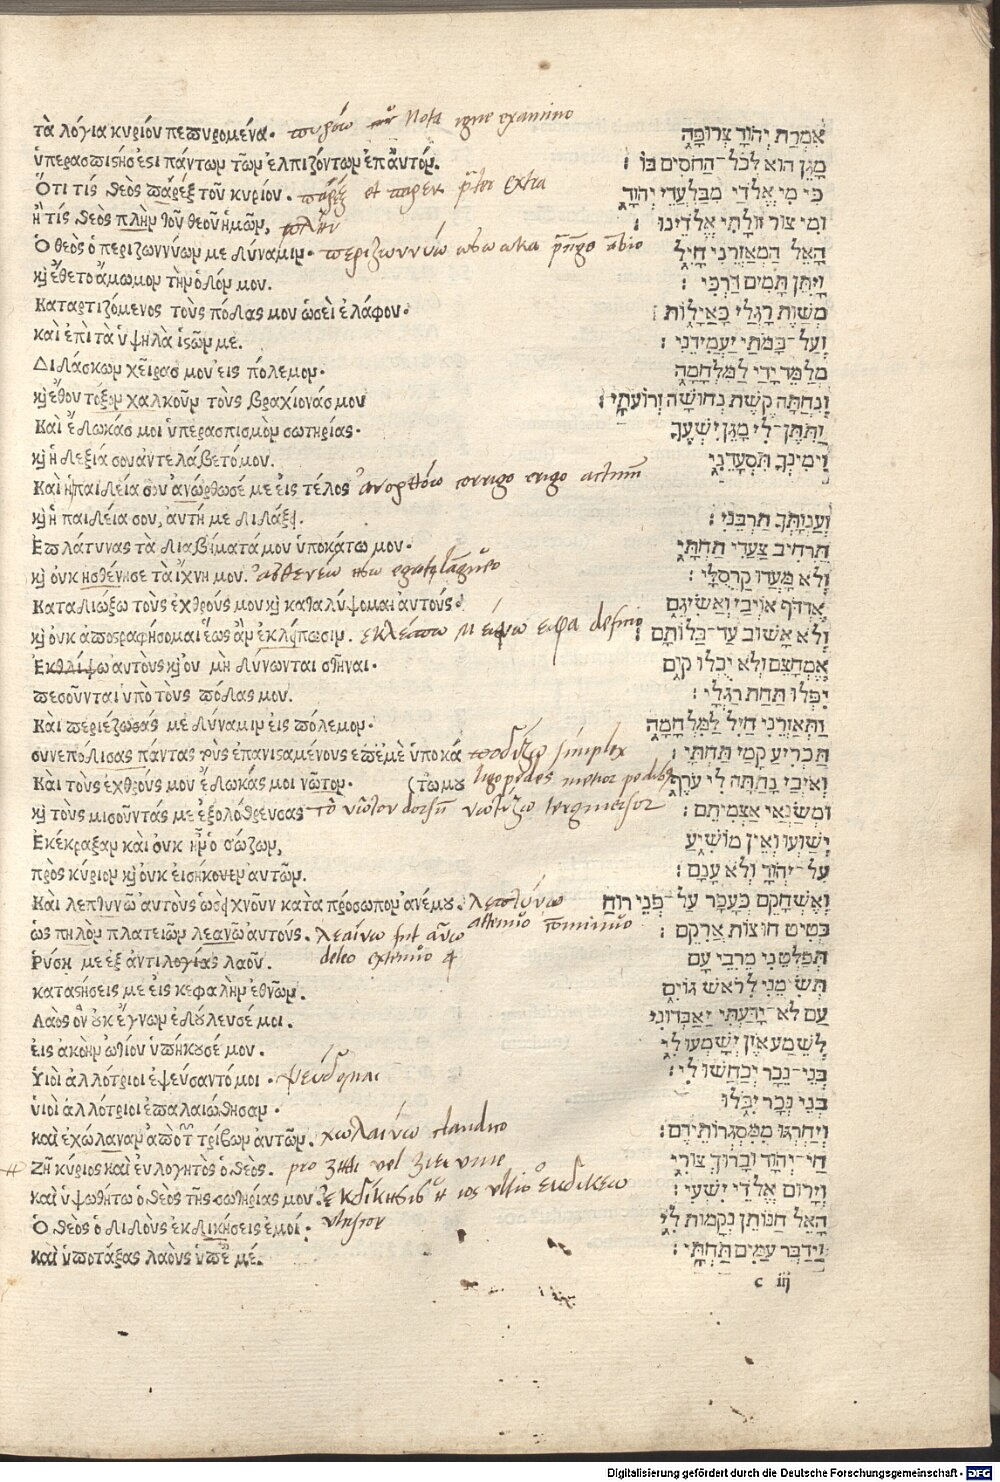 τὰ λόγια κυρίου πεπυρομένα. πυρόω Nota igne examino
ὑπερασπιστής ἐστι πάντων τῶν ἐλπιζόντων ἐπ αὐτόν.
Ὅτι τίς θεὸς πάρεξ τοῦ κυρίου. πάρεξ et παρεκ extra
ἢ τίς θεὸς πλὴν τοῦ θεοῦ ἡμῶν, πλὴν
Ὁ θεὸς ὁ περιζωννύων με δύναμιν. περιζωννύω
κ̀ ἔθετο ἄμωμον τὴν ὁδόν μου.
Καταρτιζόμενος τοὺς πόδας μου ὡσεὶ ἐλάφου.
καὶ ἐπὶ τὰ ὑψηλὰ ἱστῶν με.
Διδάσκων χεῖρας μου εἰς πόλεμον.
κ̀ ἔθου τόξον χαλκοῦν τοὺς βραχίονάς μου
Καὶ ἔδωκάς μοι ὑπερασπισμὸν σωτηρίας.
κ̀ ἡ δεξιά σου ἀντελάβετό μου.
Καὶ ἡ παιδεία σου ἀνώρθωσέ με εἰς τέλος ἀνορθόω corrigo erigo
κ̀ ἡ παιδεία σου, αὐτή με διδάξει.
Επλάτυνας τὰ διαβήματά μου ὑποκάτω μου.
κ̀ οὐκ ἠσθένησε τὰ ἴχνη μου. ἀσθενέω
Καταδιώξω τοὺς ἐχθρούς μου κ̀ καταλήψομαι αὐτούς.
κ̀ οὐκ ἀποστραφήσομαι ἕως ἂν ἐκλείπωσιν. deficio
Ἐκθλίψω αὐτοὺς κ̀ οὐ μὴ δύνωνται στῆναι.
πεσοῦνται ὑπὸ τοὺς πόδας μου.
Καὶ περιέζωσάς με δύναμιν εἰς πόλεμον.
συνεπόδισας πάντας τοὺς ἐπανισαμένους ἐπ ἐμὲ ὑποκά ποδίζω simplex
Καὶ τοὺς ἐχθρούς μου ἔδωκάς μοι νῶτον. (τω μου ligo pedes metior pedibus
κ̀ τοὺς μισοῦντάς με ἐξολόθρευσας τὸ νῶτον νωτίζω
Ἐκέκραξαν καὶ οὐκ ἦν ὁ σώζων,
πρὸς κύριον κ̀ οὐκ εἰσήκουεν αὐτῶν.
Καὶ λεπτυνῶ αὐτοὺς ὡσεὶ χνοῦν κατὰ πρόσωπον ἀνέμου. λεπτύνω
ὡς πηλὸν πλατειῶν λεανῶ αὐτούς. λεαίνω
Ῥύσῃ με ἐξ ἀντιλογίας λαοῦ. deleo
καταστήσεις με εἰς κεφαλὴν ἐθνῶν.
Λαὸς ὃν οὐκ ἔγνων ἐδούλευσέ μοι.
εἰς ἀκοὴν ὠτίου ὑπήκουσέ μου.
Υἱοὶ ἀλλότριοι ἐψεύσαντό μοι. ψεύδομαι
υἱοὶ ἀλλότριοι ἐπαλαιώθησαν.
καὶ ἐχώλαναν ἀπὸ τῶν τρίβων αὐτῶν. χωλαίνω claudico
Ζῆ κύριος καὶ εὐλογητὸς ὁ θεός. pro
καὶ ὑψωθήτω ὁ θεὸς τῆς σωτηρίας μου. ἐκδίκησις ultio ἐκδικέω
Ὁ θεὸς ὁ διδοὺς ἐκδικήσεις ἐμοί. ulciscor
καὶ ὑποτάξας λαοὺς ὑπ ἐμέ.
אִמְרַת יְהוָֹה צְרוּפָה
מָגֵן הוּא לְכֹל־הַחֹסִים בּוֹ :
כִּי מִי אֱלֹדַי מִבַּלְעֲדֵי יְהוָֹה
וּמִי צוּר זוּלָתִי אֱלֹדֵינוּ :
הָאֵל הַמְאַזְּרֵנִי חָיִל
וַיִּתֵּן תָּמִים דַּרְכִּי :
מְשַׁוֶּה רַגְלַי כָּאַיָּלוֹת
וְעַל־בָּמֹתַי יַעֲמִידֵנִי :
מְלַמֵּד יָדַי לַמִּלְחָמָה
וְנִחֲתָה קֶשֶׁת נְחוּשָׁה זְרוֹעֹתָי :
וַתִּתֶּן־לִי מָגֵן יִשְׁעֶךָ
וִימִינְךָ תִּסְעָדֵנִי
וְעַנְוָתְךָ תַרְבֵּנִי :
תַּרְחִיב צַעֲדִי תַחְתָּי
וְלֹא מָעֲדוּ קַרְסֻלָּי :
אֶרְדּוֹף אוֹיְבַי וְאַשִּׂיגֵם
וְלֹא אָשׁוּב עַד־כַּלּוֹתָם :
אֶמְחָצֵם וְלֹא יֻכְלוּ קוּם
יִפְּלוּ תַּחַת רַגְלָי :
וַתְּאַזְּרֵנִי חַיִל לַמִּלְחָמָה
תַּכְרִיעַ קָמַי תַּחְתָּי :
וְאֹיְבַי נָתַתָּה לִּי עֹרֶף
וּמְשַׂנְאַי אַצְמִיתֵם :
יְשַׁוְּעוּ וְאֵין מוֹשִׁיעַ
עַל־יְהוָֹה וְלֹא עָנָם :
וְאֶשְׁחָקֵם כְּעָפָר עַל־פְּנֵי רוּחַ
כְּטִיט חוּצוֹת אֲרִיקֵם :
תְּפַלְּטֵנִי מֵרִיבֵי עָם
תְּשִׂימֵנִי לְרֹאשׁ גּוֹיִם
עַם לֹא־יָדַעְתִּי יַעַבְדוּנִי
לְשֵׁמַע אֹזֶן יִשָּׁמְעוּ לִי
בְּנֵי־נֵכָר יְכַחֲשׁוּ לִי :
בְּנֵי נֵכָר יִבֹּלוּ
וְיַחְרְגוּ מִמִּסְגְּרוֹתֵיהֶם :
חַי־יְהוָֹה וּבָרוּךְ צוּרִי
וְיָרוּם אֱלֹדֵי יִשְׁעִי :
הָאֵל הַנּוֹתֵן נְקָמוֹת לִי
וַיַּדְבֵּר עַמִּים תַּחְתָּי :
c iij
Digitalisierung gefördert durch die Deutsche Forschungsgemeinschaft - DFG